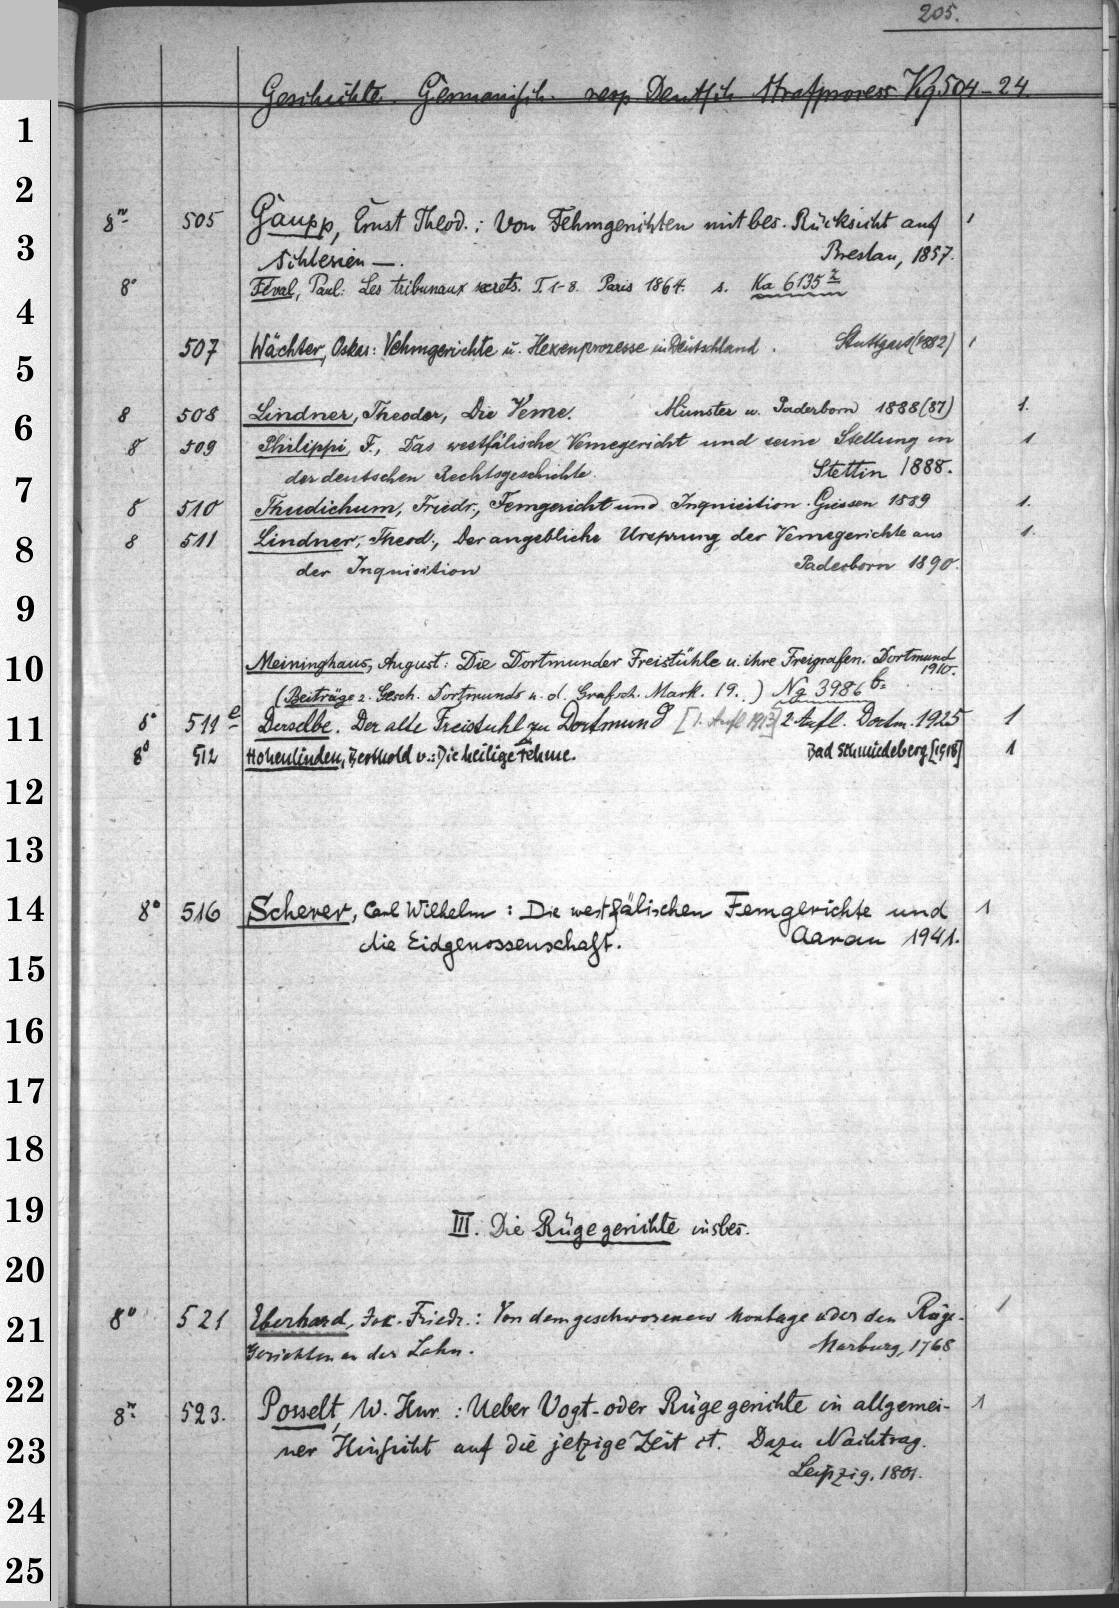 205.
Geschichte. Germanisch. resp. Deutsch Strafprozess Kg 504-24.
1
2
8° 505 Gaupp, Ernst Theod.: Von Fehmgerichten mit bes. Rücksicht auf 1
3
Schlesien —. Breslau, 1857.
8° Féval, Paul: Les tribunaux secrets. T. 1-8. Paris 1864. s. Ka 6135 z
4
507 Wächter, Oskar: Vehmgerichte u. Hexenprozesse in Deutschland. Stuttgart (1882) 1
5
8 508 Lindner, Theodor, Die Veme. Münster u. Paderborn 1888 (87) 1.
6
8 509 Philippi, F., Das westfälische Vemegericht und seine Stellung in 1
der deutschen Rechtsgeschichte. Stettin 1888.
7
8 510 Thudichum, Friedr., Femgericht und Inquisition. Giessen 1889 1.
8 511 Lindner, Theod., Der angebliche Ursprung der Vemegerichte aus 1.
8
der Inquisition Paderborn 1890.
9
10
Meininghaus, August: Die Dortmunder Freistühle u. ihre Freigrafen. Dortmund
1910.
(Beiträge z. Gesch. Dortmunds u. d. Grafsch. Mark. 19.) Ng 3986 b.
11
8° 511 e Derselbe. Der alte Freistuhl zu Dortmund [1. Aufl. 1913] 2. Aufl. Dortm. 1925 1
8° 512 Hohenlinden, Berthold v.: Die heilige Fehme. Bad Schmiedeberg [1918] 1
12
13
14
8° 516 Scherer, Carl Wilhelm: Die westfälischen Femgerichte und 1
die Eidgenossenschaft. Aarau 1941.
15
16
17
18
19
III. Die Rügegerichte insbes.
20
8° 521 Eberhard, Jak. Friedr.: Von dem geschworenen Montage oder den Rüge- 1
21
Gerichten an der Lahn. Marburg, 1768
22
8° 523. Posselt, W. Hnr.: Ueber Vogt- oder Rügegerichte in allgemei- 1
23
ner Hinsicht auf die jetzige Zeit et. Dazu Nachtrag.
Leipzig, 1801.
24
25